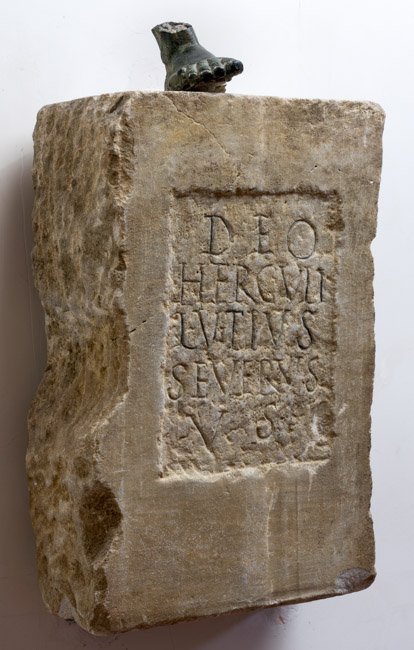 DEO
HERCVLI
LVTIVS
SEVERVS
V S